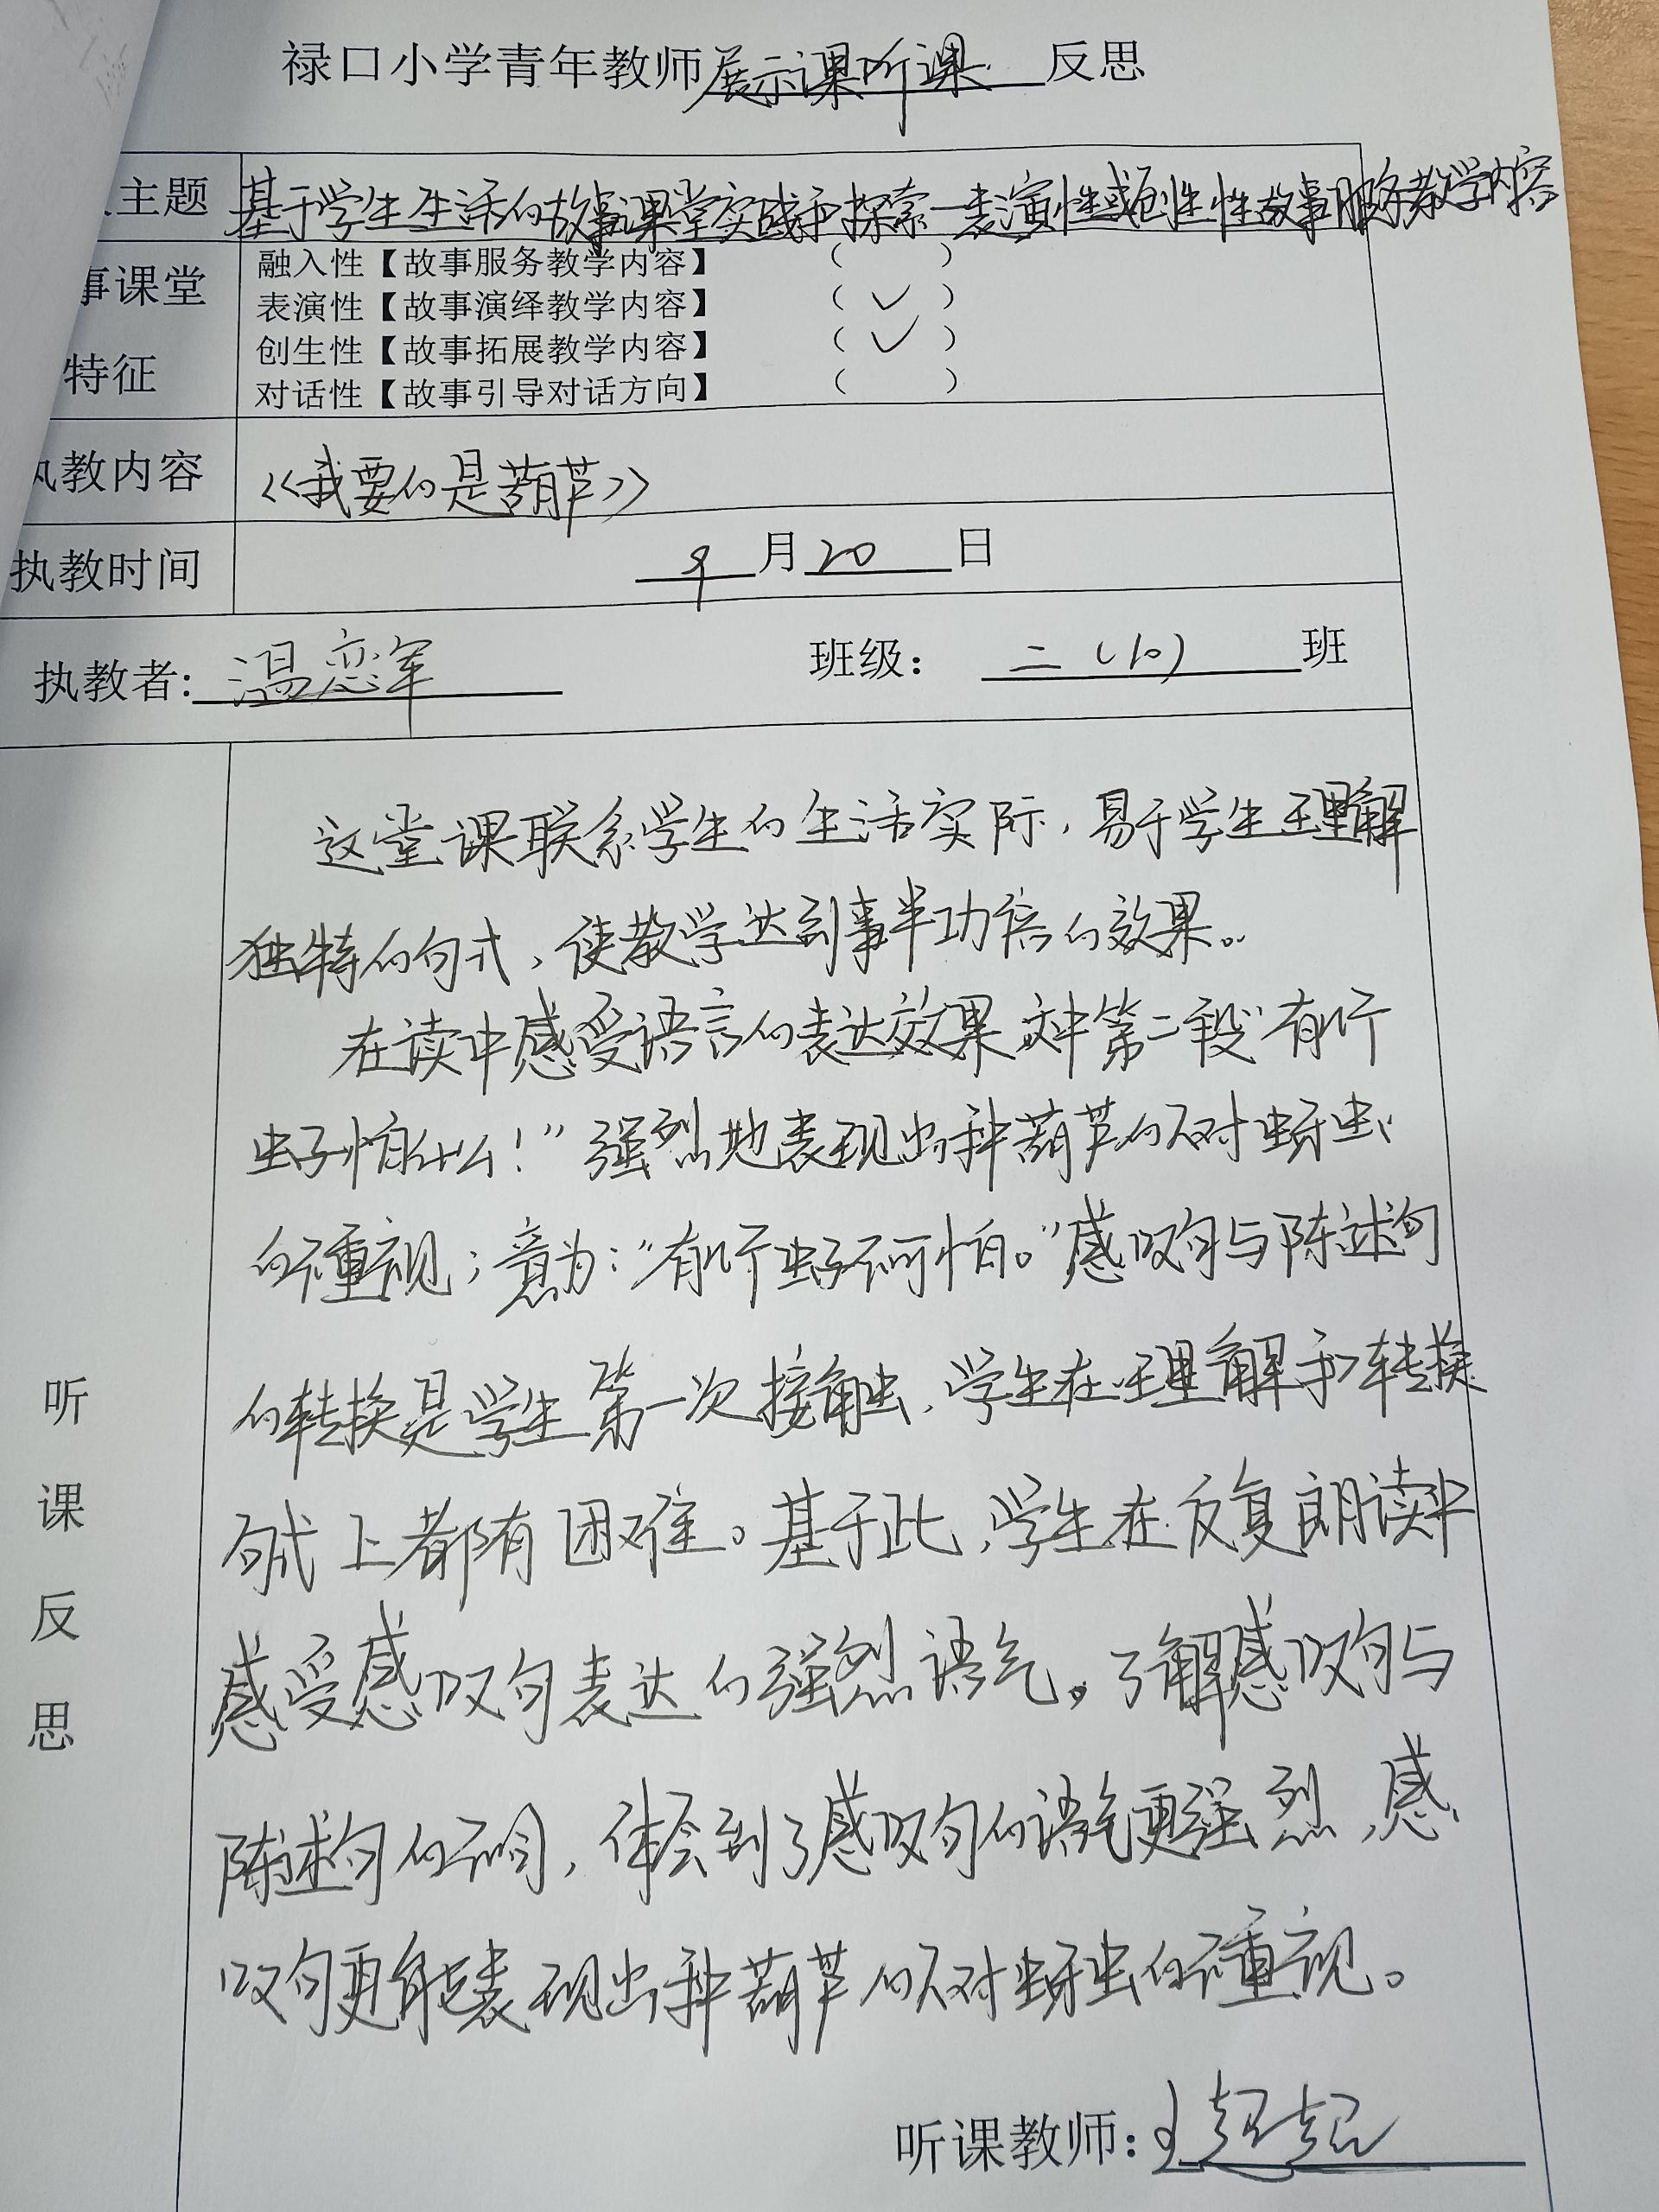 禄口小学青年教师展示课听课 反思
主题 基于学生生活的故事课堂实践和探索—表演性或创生性故事服务教学内容
事课堂
特征
融入性【故事服务教学内容】 ( )
表演性【故事演绎教学内容】 (✓)
创生性【故事拓展教学内容】 (✓)
对话性【故事引导对话方向】 ( )
执教内容 《我要的是葫芦》
执教时间 9月20日
执教者:温恋军 班级: 二(10) 班
听课反思
这堂课联系学生的生活实际,易于学生理解
独特的句式,使教学达到事半功倍的效果。
在读中感受语言的表达效果,文中第二段"有几个
虫子怕什么!"强烈地表现出种葫芦的人对蚜虫
的不重视;意为:"有几个虫子不可怕。"感叹句与陈述句
的转换是学生第一次接触,学生在理解和转换
句式上都有困难。基于此,学生在反复朗读中
感受感叹句表达的强烈语气。了解感叹句与
陈述句的不同,体会到了感叹句的语气更强烈,感
叹句更能表现出种葫芦的人对蚜虫的不重视。
听课教师:王超超